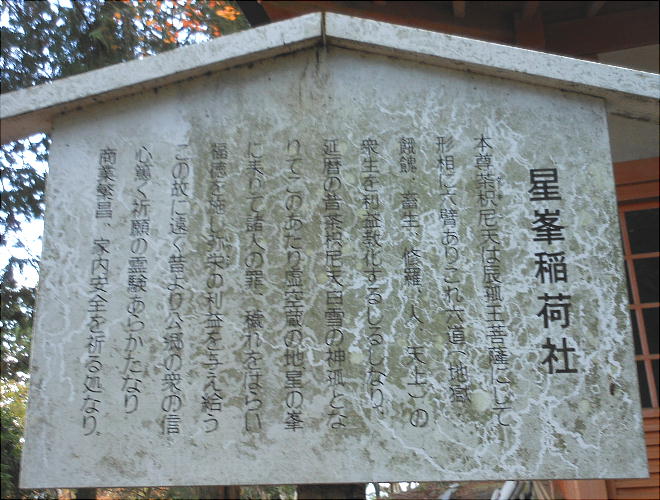 星峯稲荷社
本尊荼枳尼天は辰孤王菩薩にして
形相に六臂ありこれ六道（地獄
餓鬼、畜生、修羅、人、天上）の
衆生を利益教化するしるしなり、
延暦の昔荼枳尼天白雪の神孤とな
りてこのあたり虚空蔵の地星の峯
に来りて諸人の罪、穢れをはらい
福徳を施し弥栄の利益を与え給う
この故に遠く昔より公郷の衆の信
心篤く祈願の霊験あらかたなり
商業繁昌、家内安全を祈る処なり。